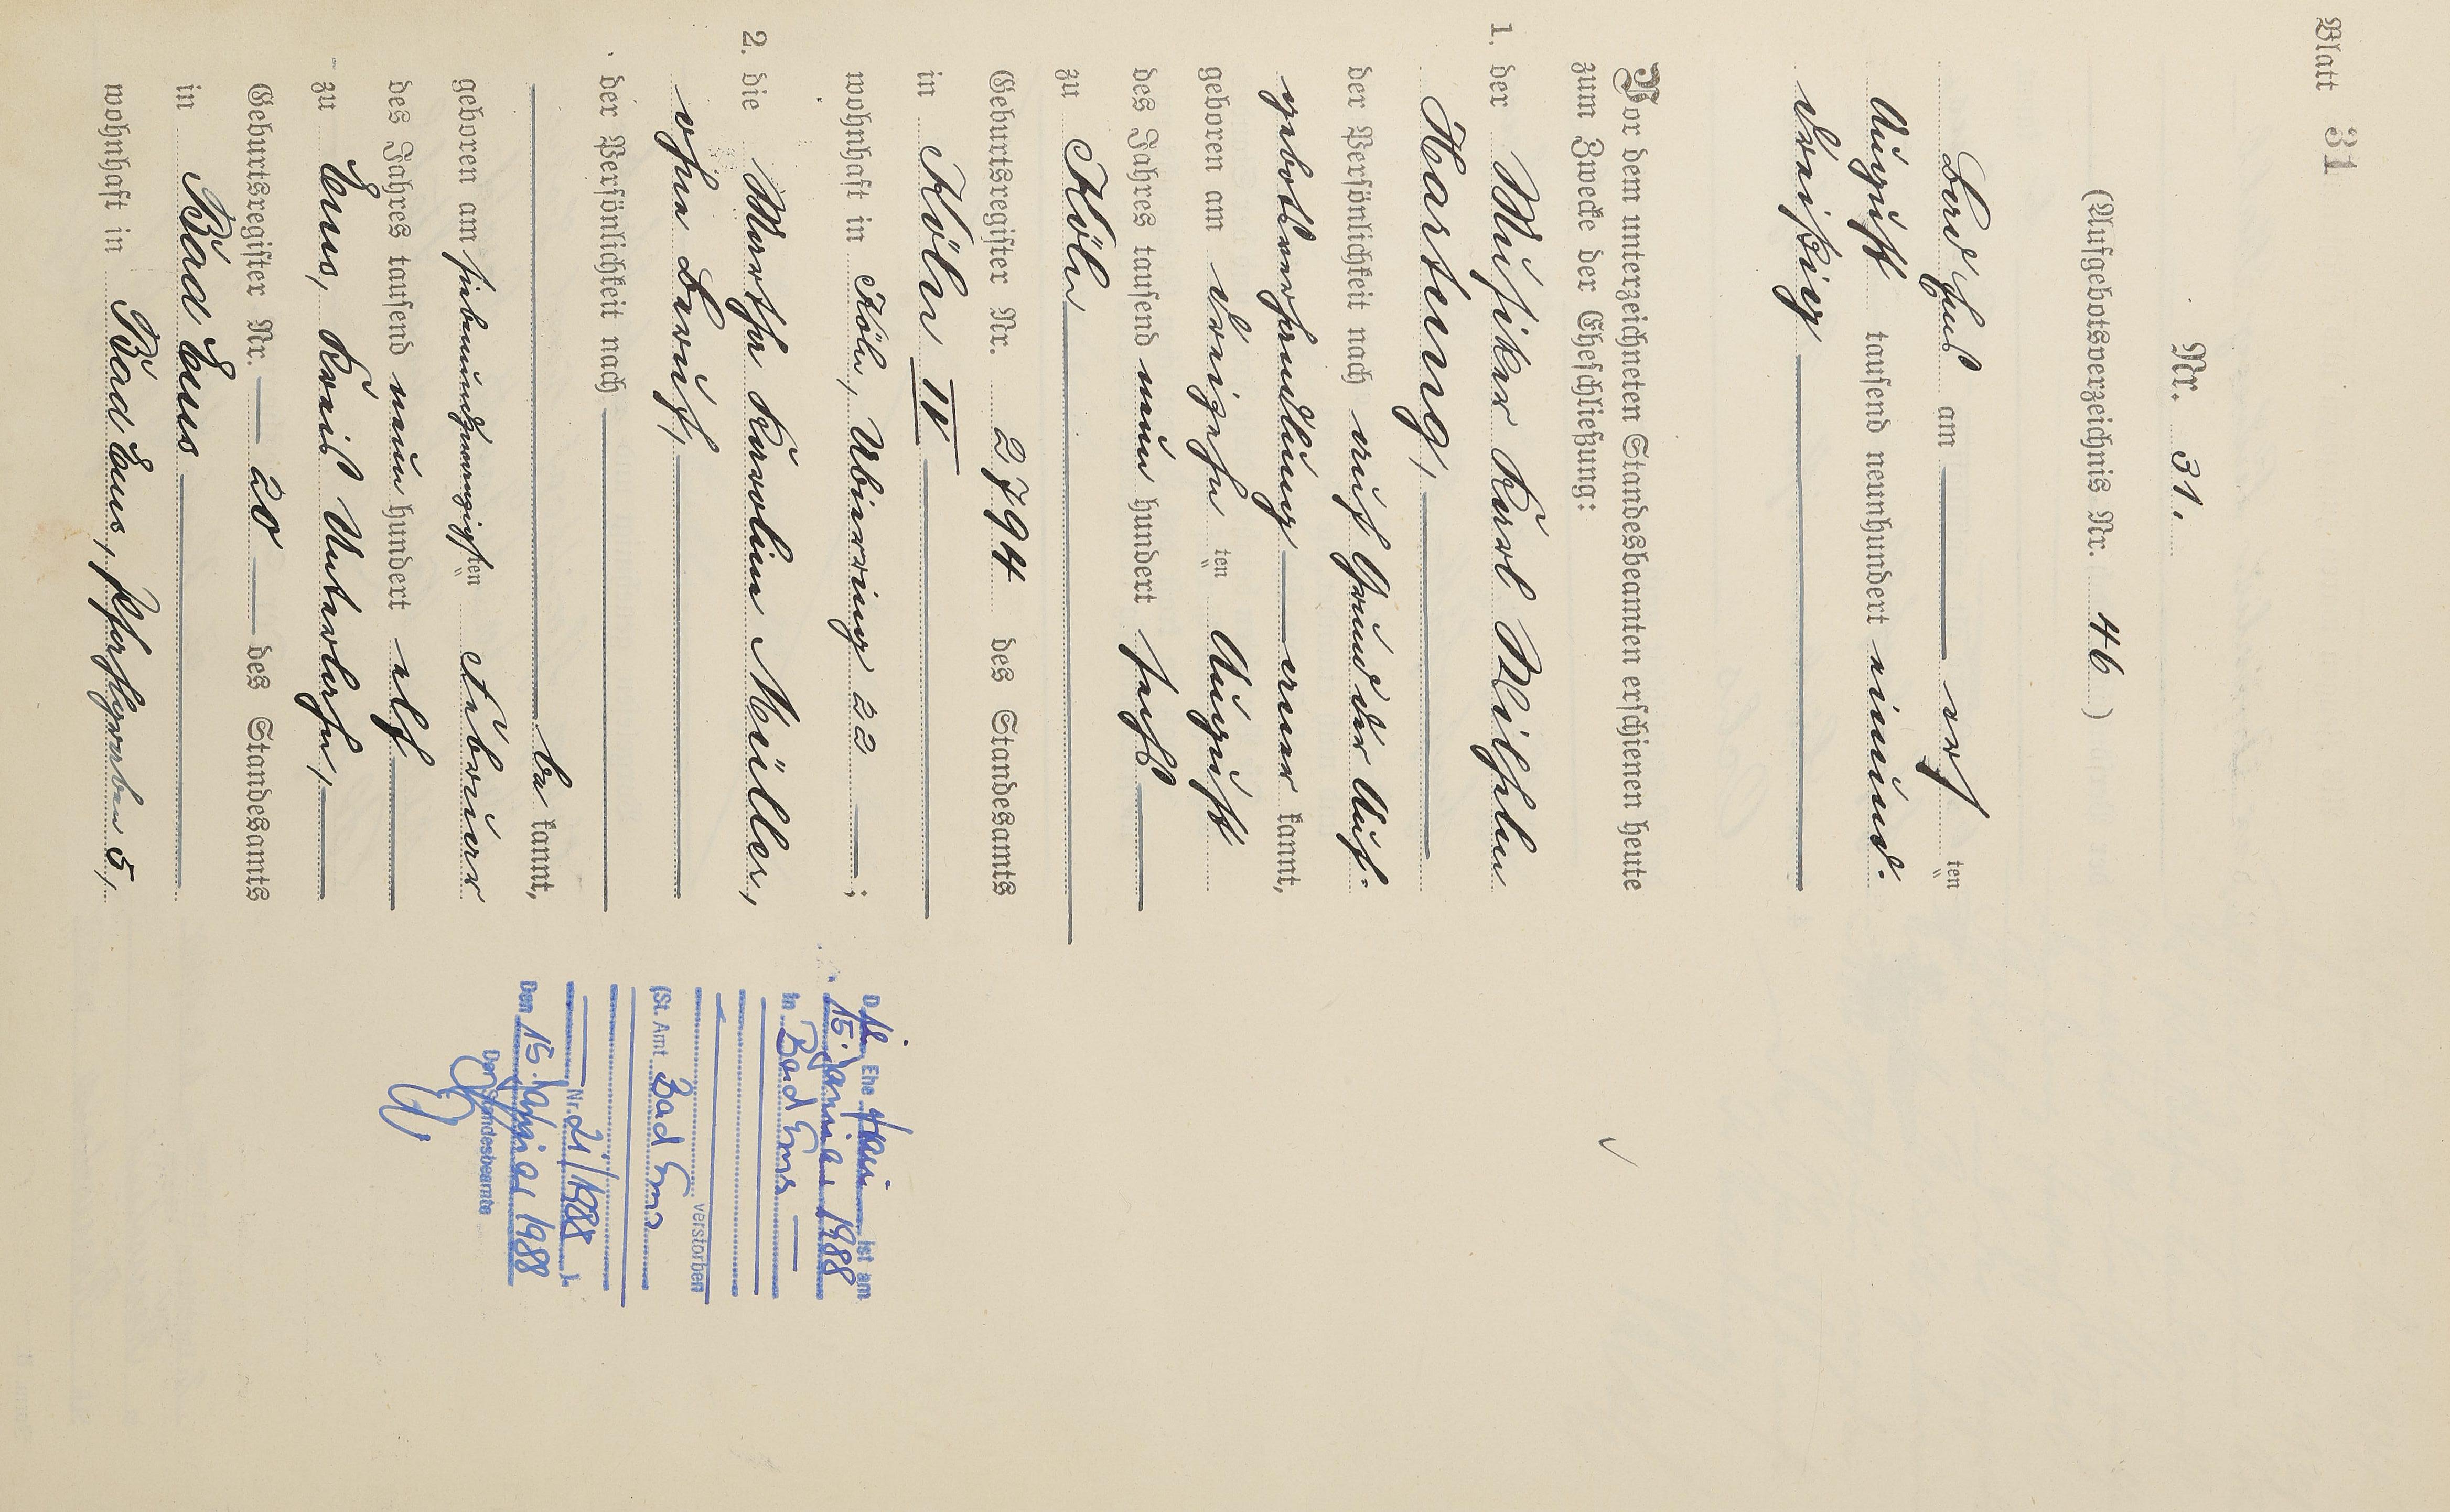 Blatt 31
Nr. 31.
(Aufgebotsverzeichnis Nr. 46)
Bad Ems am — acht ten
August tausend neunhundert einund-
dreißig
Vor dem unterzeichneten Standesbeamten erschienen heute
zum Zwecke der Eheschließung:
1. der Musiker Karl Wilhelm
Hartung,
der Persönlichkeit nach auf Grund der Auf-
gebotsverhandlung — aner kannt,
geboren am dreizehn ten August
des Jahres tausend neun hundert sechs
zu Köln
Geburtsregister Nr. 2794 des Standesamts
in Köln IV
wohnhaft in Köln, Ubierring 22 — ;
2. die Martha Karoline Müller,
ohne Beruf,
der Persönlichkeit nach
be kannt,
geboren am siebenundzwanzigsten ten Februar
des Jahres tausend neun hundert elf
zu Ems, Kreis Unterlahn,
Geburtsregister Nr. — 20 — des Standesamts
in Bad Ems
wohnhaft in Bad Ems, 5,
D Ehefrau ist am
15. Januar 1988
in Bad Ems —
verstorben
(St. Amt Bad Ems
Nr. 21/1988 ).
Den 15. Januar 1988
Der Standesbeamte